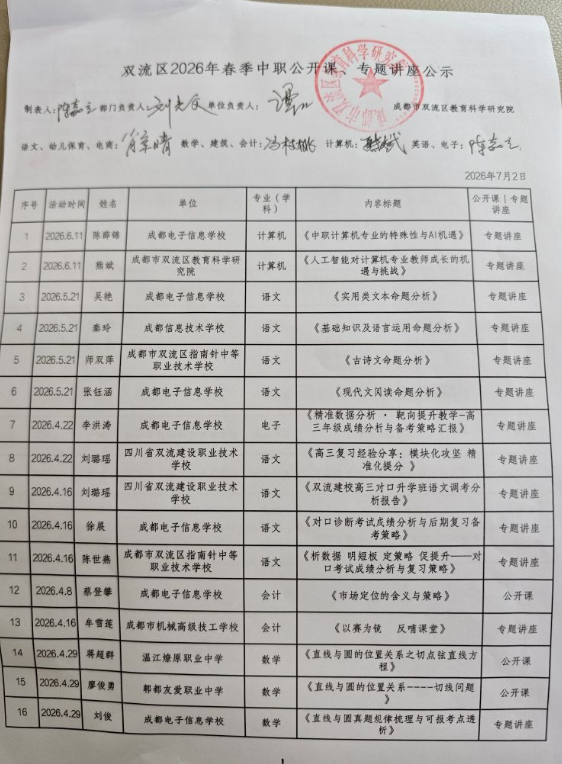 双流区2026年春季中职公开课、专题讲座公示
制表人: 部门负责人: 单位负责人: 成都市双流区教育科学研究院
语文、幼儿保育、电商: 数学、建筑、会计: 计算机: 英语、电子:
2026年7月2日
序号 活动时间 姓名 单位 专业（学科） 内容标题 公开课｜专题讲座
1 2026.6.11 陈薛锦 成都电子信息学校 计算机 《中职计算机专业的特殊性与AI机遇》 专题讲座
2 2026.6.11 熊斌 成都市双流区教育科学研究院 计算机 《人工智能对计算机专业教师成长的机遇与挑战》 专题讲座
3 2026.5.21 吴艳 成都电子信息学校 语文 《实用类文本命题分析》 专题讲座
4 2026.5.21 秦玲 成都信息技术学校 语文 《基础知识及语言运用命题分析》 专题讲座
5 2026.5.21 师双萍 成都市双流区指南针中等职业技术学校 语文 《古诗文命题分析》 专题讲座
6 2026.5.21 张钰涵 成都电子信息学校 语文 《现代文阅读命题分析》 专题讲座
7 2026.4.22 李洪涛 成都电子信息学校 电子 《精准数据分析 · 靶向提升教学-高三年级成绩分析与备考策略汇报》 专题讲座
8 2026.4.22 刘璐瑶 四川省双流建设职业技术学校 语文 《高三复习经验分享：模块化攻坚 精准化提分 》 专题讲座
9 2026.4.16 刘璐瑶 四川省双流建设职业技术学校 语文 《双流建校高三对口升学班语文调考分析报告》 专题讲座
10 2026.4.16 徐展 成都电子信息学校 语文 《对口诊断考试成绩分析与后期复习备考策略》 专题讲座
11 2026.4.16 陈世燕 成都市双流区指南针中等职业技术学校 语文 《析数据 明短板 定策略 促提升——对口考试成绩分析与复习策略》 专题讲座
12 2026.4.8 蔡登攀 成都电子信息学校 会计 《市场定位的含义与策略》 公开课
13 2026.4.16 牟雪莲 成都市机械高级技工学校 会计 《以赛为镜 反哺课堂》 专题讲座
14 2026.4.29 蒋超群 温江燎原职业中学 数学 《直线与圆的位置关系之切点弦直线方程》 公开课
15 2026.4.29 廖俊勇 郫都友爱职业中学 数学 《直线与圆的位置关系----切线问题》 公开课
16 2026.4.29 刘俊 成都电子信息学校 数学 《直线与圆真题规律梳理与可报考点透析》 专题讲座